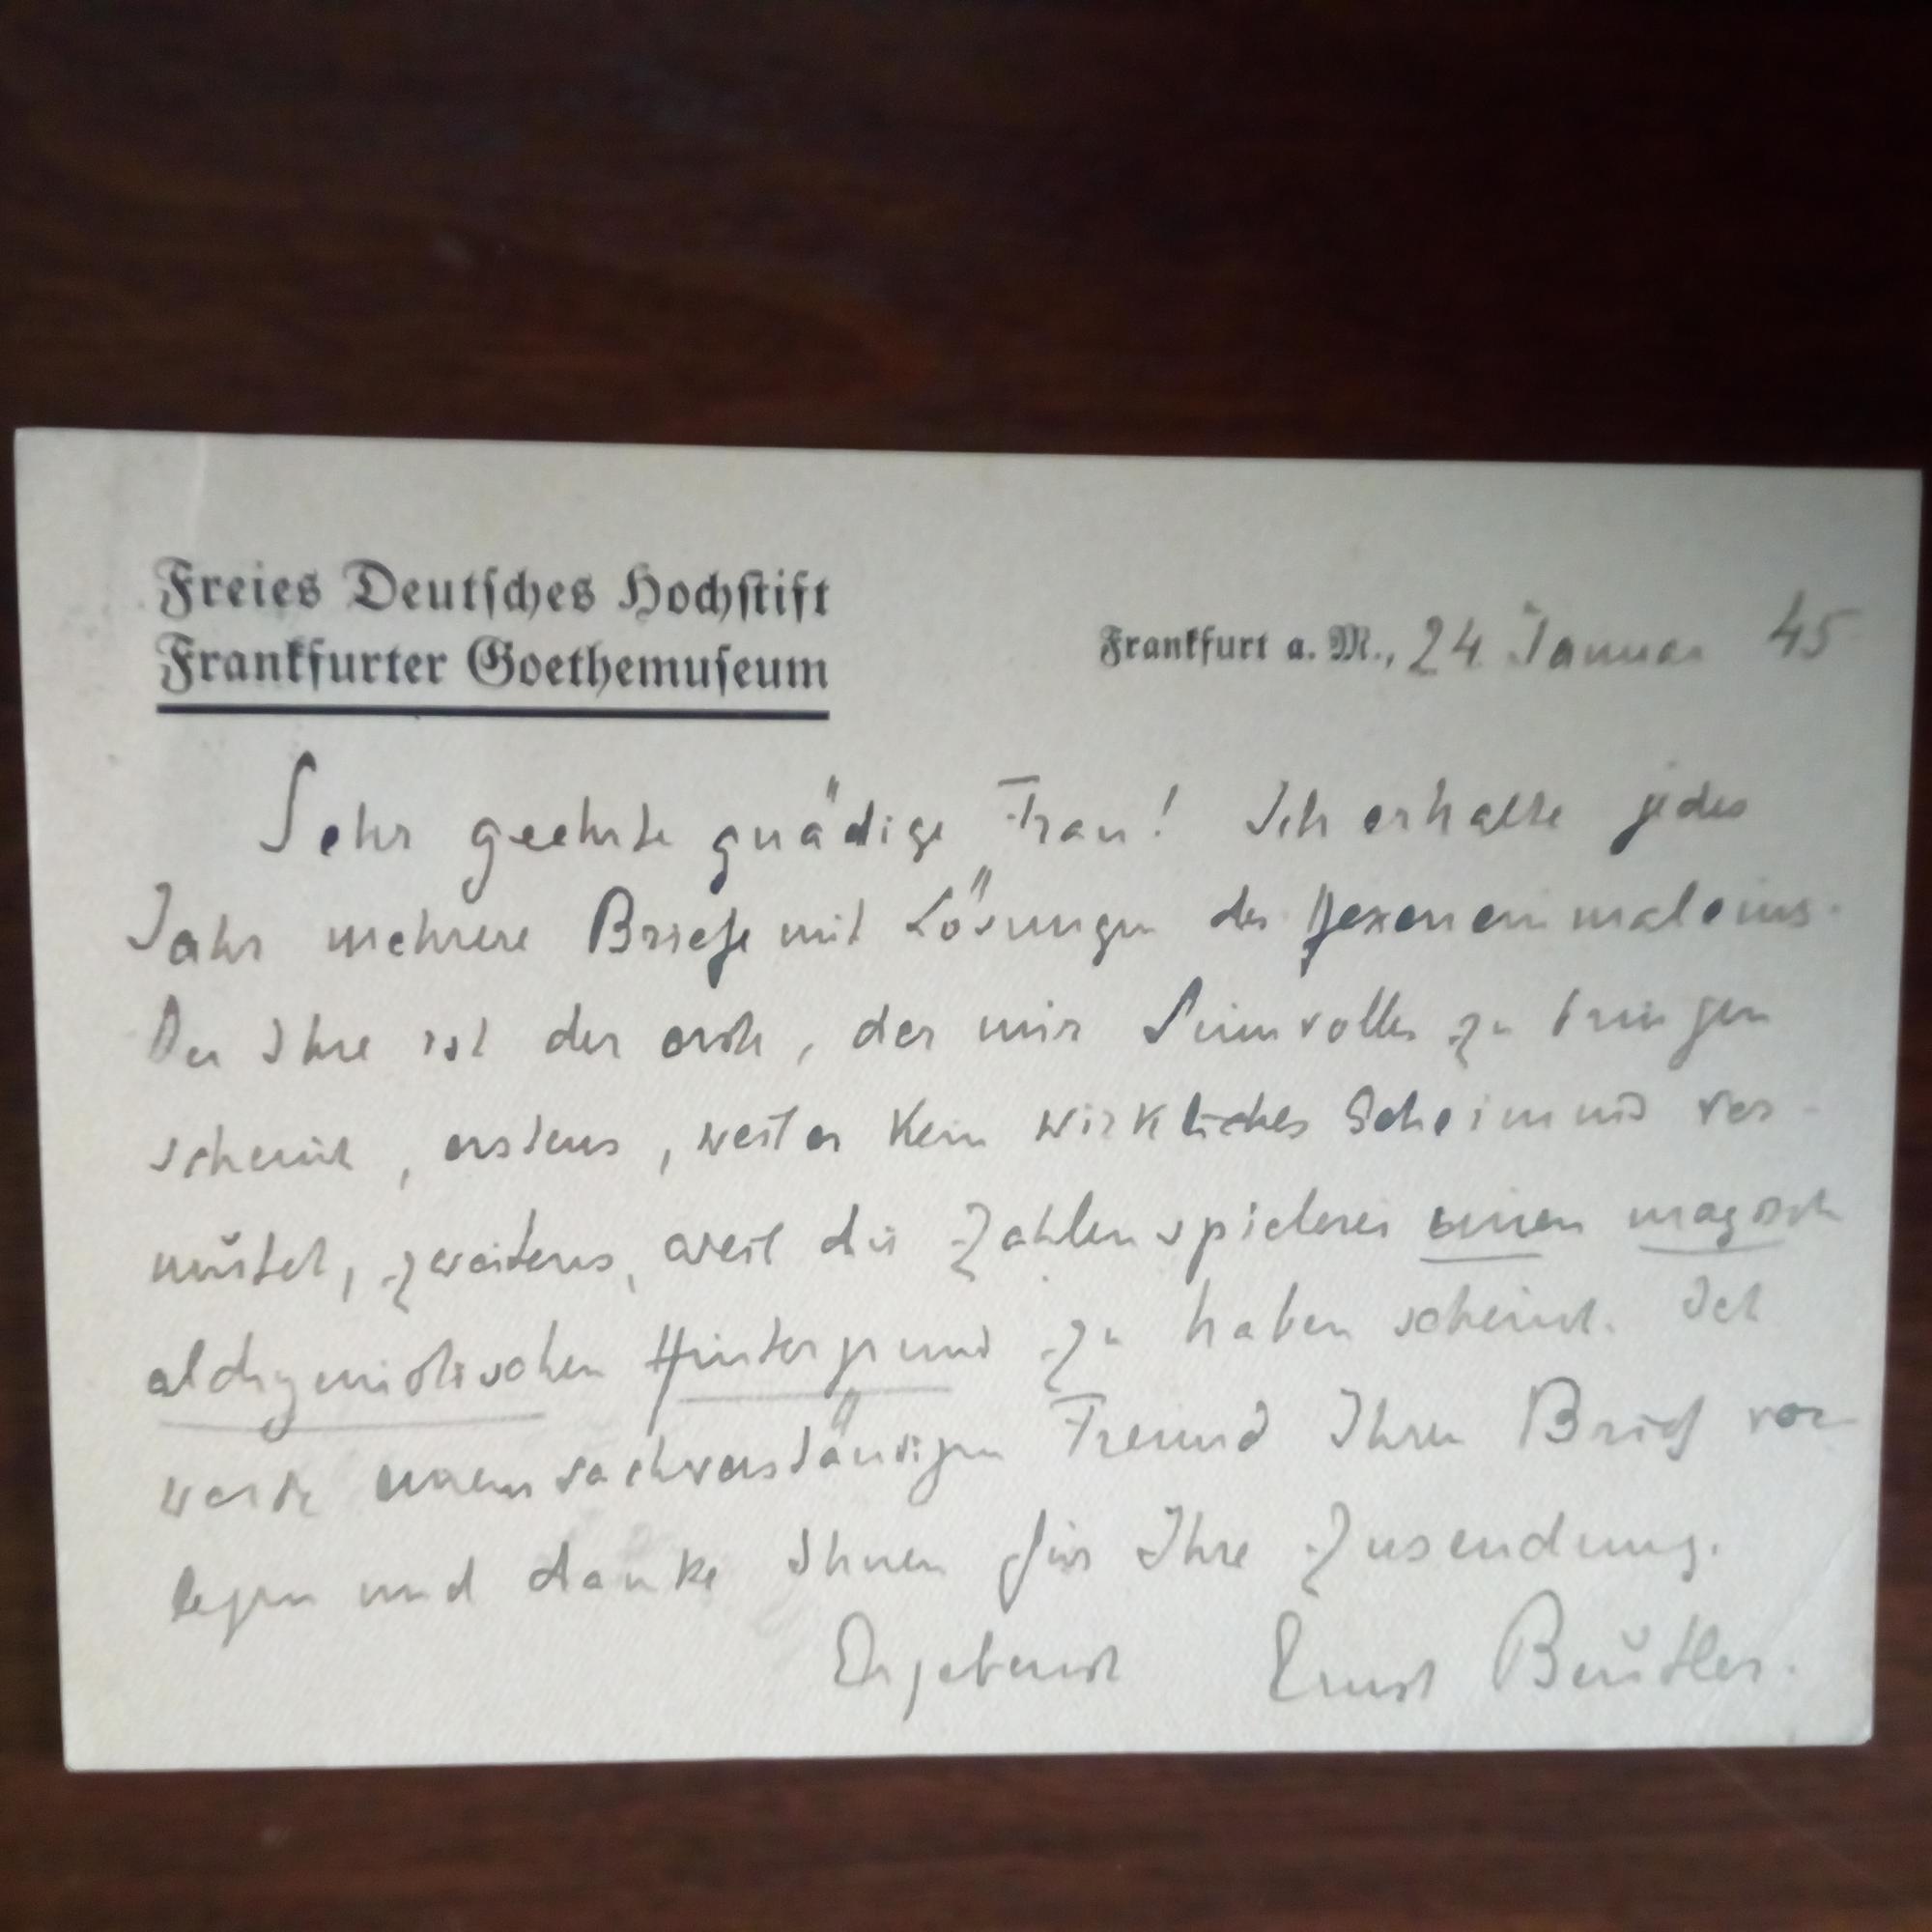 Freies Deutsches Hochstift
Frankfurter Goethemuseum
Frankfurt a. M., 24 Januar 45
Sehr geehrte gnädige Frau! Ich erhalte jedes
Jahr mehrere Briefe mit Lösungen des Hexeneinmaleins.
Der Ihre ist der erste, der mir Sinnvolles zu bringen
scheint, erstens, weil er kein wirkliches Geheimnis ver-
mutet, zweitens, weil die Zahlenspielerei einen magisch
alchymistischen Hintergrund zu haben scheint. Ich
werde einem sachverständigen Freund Ihren Brief vor
legen und danke Ihnen für Ihre Zusendung.
Ergebenst Ernst Beutler.